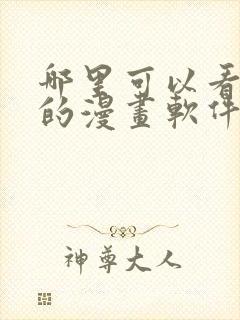 哪里可以看
的漫畫軟件
神尊大人